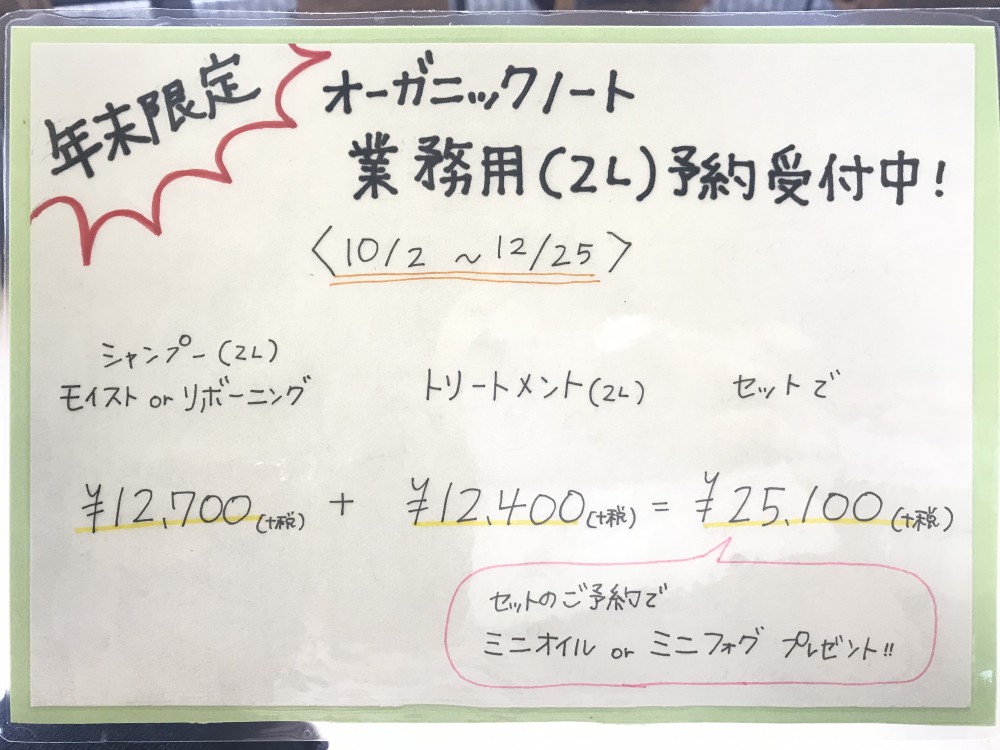 年末限定
オーガニックノート
業務用(2L)予約受付中!
〈10/2 ~ 12/25〉
シャンプー(2L)
モイスト or リボーニング
トリートメント(2L)
セットで
¥12,700(+税) + ¥12,400(+税) = ¥25,100(+税)
セットのご予約で
ミニオイル or ミニフォグ プレゼント!!